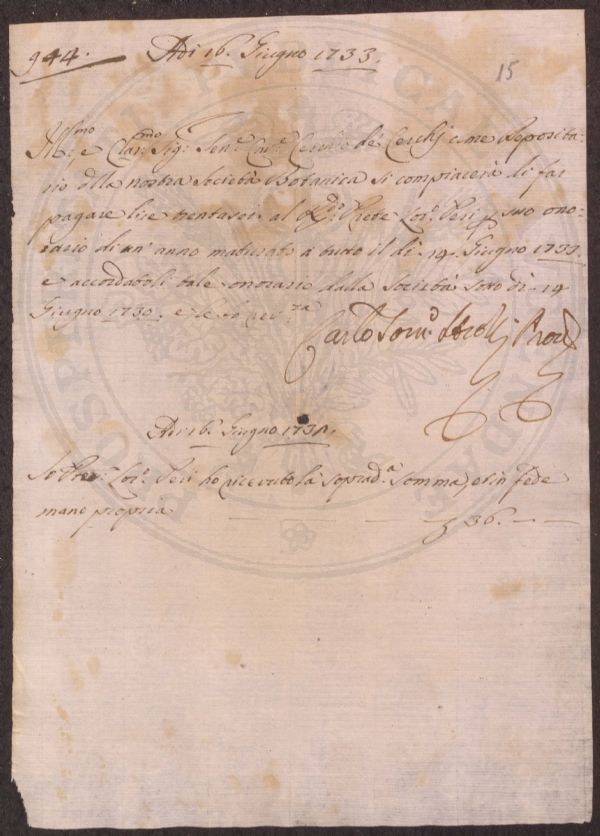 944. Adi 16. Giugno 1733.
15
Ill.mo e Clar.mo Sig.e Sen.e Cav.e de' Cerchj come Deposita-
rio della nostra Società Botanica si compiacerà di far
pagare lire trentasei al R.do Prete Lor.o Peri p suo ono-
rario di un' anno maturato a tutto il dì 14. Giugno 1733.
e accordatoli tale onorario dalla Società Sotto dì 14
Giugno 1730. e
Carlo
Adi 16. Giugno 173
Io Lor.o Peri ho ricevuto la soprad.a somma, et in fede
mano propria 36.